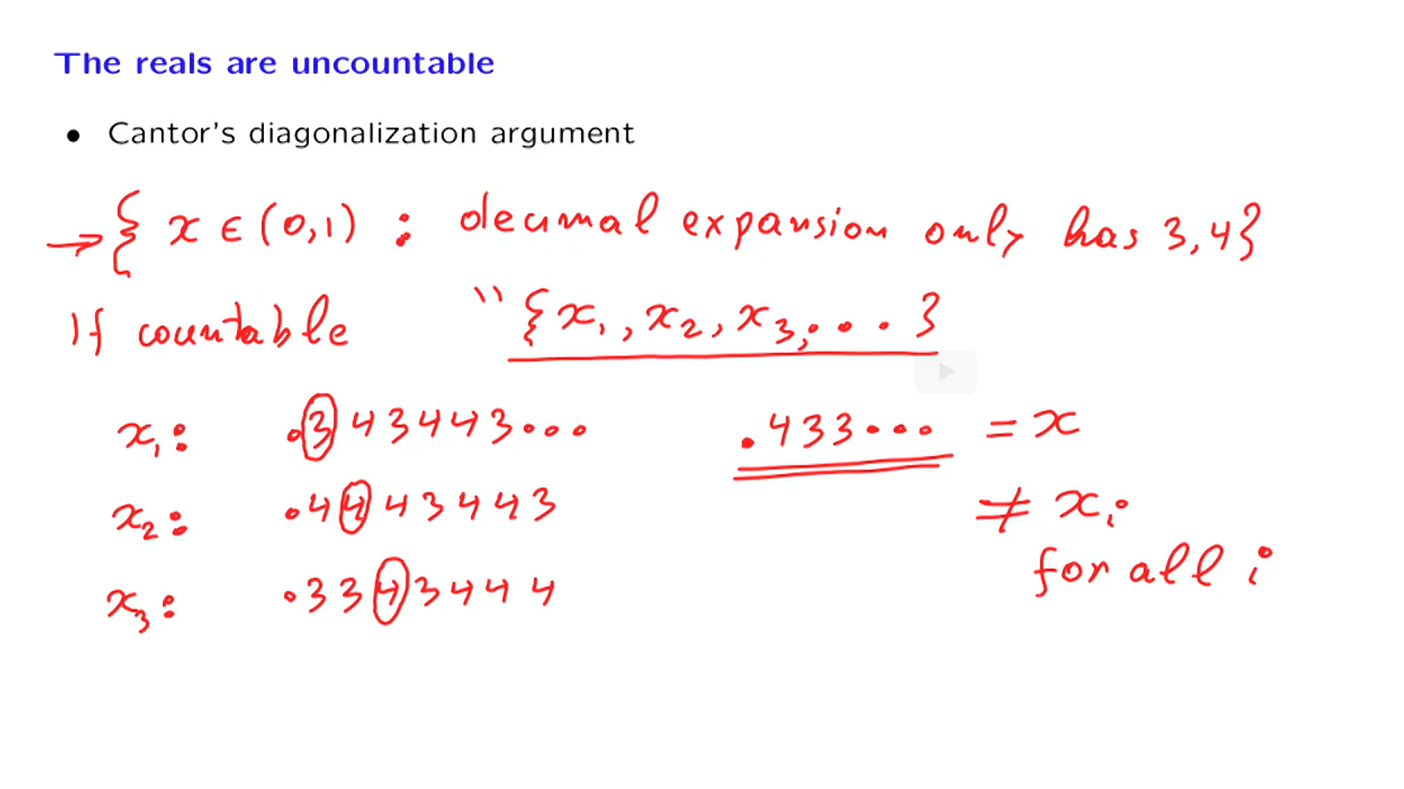 The reals are uncountable
• Cantor's diagonalization argument
→ { x ∈ (0,1) : decimal expansion only has 3,4}
If countable " {x₁, x₂, x₃, ... }
x₁: .343443... .433... = x
x₂: .4443443 ≠ xᵢ
x₃: .3343444 for all i